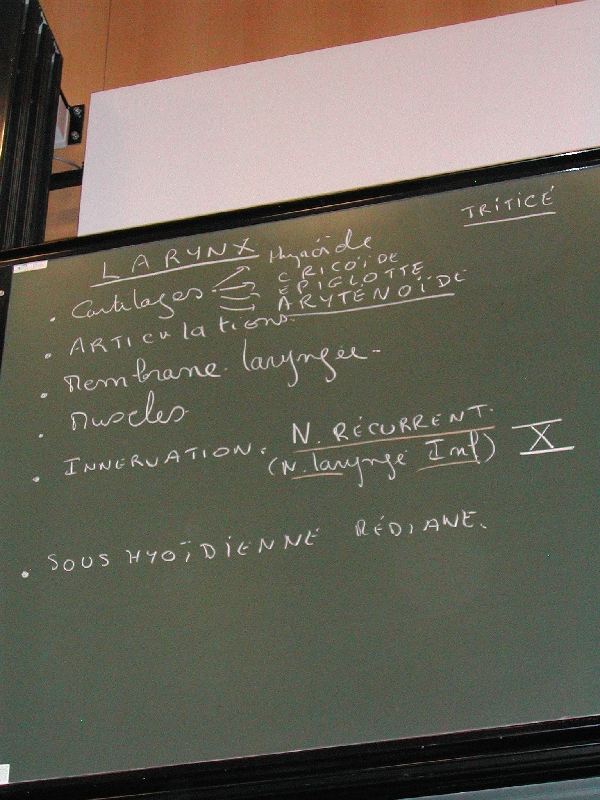 TRITICÉ
LARYNX
• Cartilages
Hyoïde
CRICOÏDE
EPIGLOTTE
ARYTÉNOÏDE
• ARTICULATIONS
• Membrane laryngée
• Muscles
• INNERVATION. N. RÉCURRENT. X
(N. laryngé Inf)
• SOUS HYOÏDIENNE MÉDIANE.